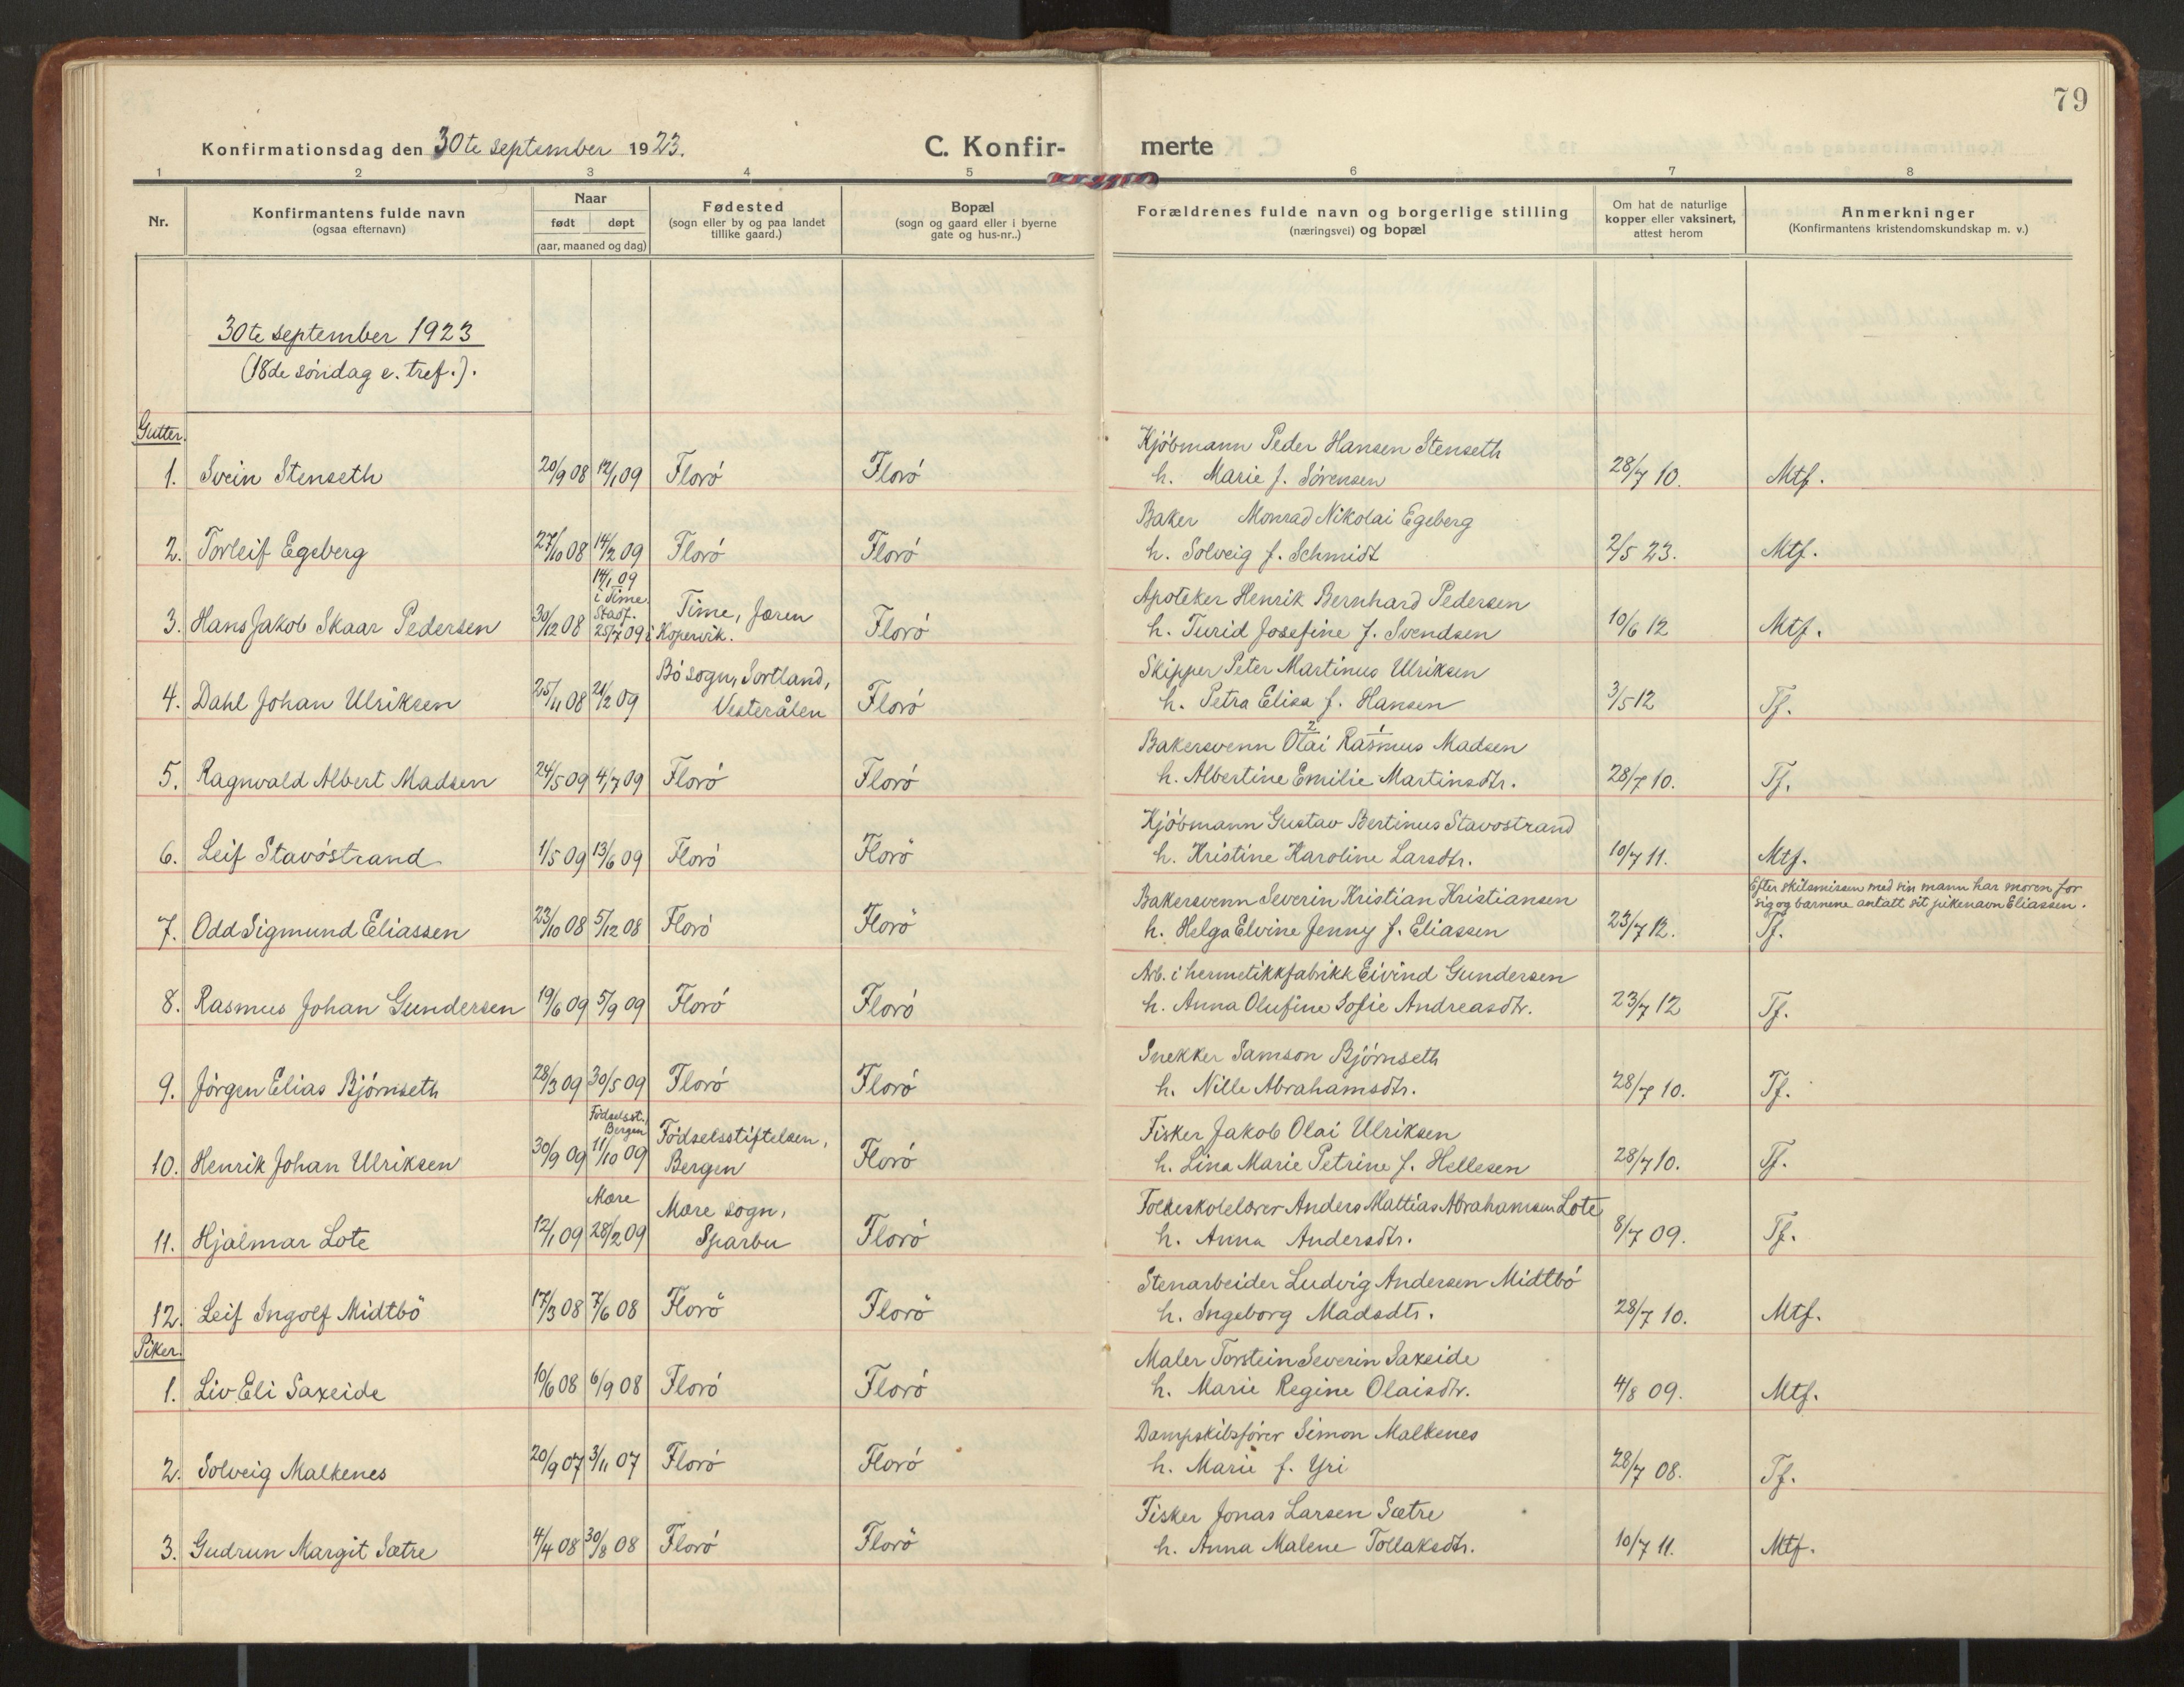 79
Konfirmationsdag den 30te september 1923.
C. Konfir-
merte
1 2 3 4 5 6 7 8
Nr.
Konfirmantens fulde navn
(ogsaa efternavn)
Naar
født døpt
(aar, maaned og dag)
Fødested
(sogn eller by og paa landet
tillike gaard.)
Bopæl
(sogn og gaard eller i byerne
gate og hus-nr..)
Forældrenes fulde navn og borgerlige stilling
(næringsvei) og bopæl
Om hat de naturlige
kopper eller vaksinert,
attest herom
Anmerkninger
(Konfirmantens kristendomskundskap m. v.)
30te september 1923
(18de søndag e. tref.).
Gutter.
Kjøbmann Peder Hansen Stenseth
1. Svein Stenseth 20/9 08 12/1 09 Florø Florø h. Marie f. Sørensen 28/7 10. Mtf.
Baker Monrad Nikolai Egeberg
2. Torleif Egeberg 27/10 08 14/2 09 Florø Florø h. Solveig f. Schmidt 2/5 23. Mtf.
14/1 09
i Time
Stadf. Time, Jæren Apoteker Henrik Bernhard Pedersen
3. Hans Jakob Skaar Pedersen 30/12 08 25/7 09 i Kopervik. Florø h. Turid Josefine f. Svendsen 10/6 12 Mtf.
Bø sogn, Sortland, Skipper Peter Martinus Ulriksen
4. Dahl Johan Ulriksen 25/11 08 21/2 09 Vesterålen Florø h. Petra Elisa f. Hansen 3/5 12 Tf.
2 1
Bakersvenn Olai Rasmus Madsen
5. Ragnvald Albert Madsen 24/5 09 4/7 09 Florø Florø h. Albertine Emilie Martinsdtr. 28/7 10. Tf.
Kjøbmann Gustav Bertinus Stavøstrand
6. Leif Stavøstrand 1/5 09 13/6 09 Florø Florø h. Kristine Karoline Larsdtr. 10/7 11. Mtf.
Efter skilsmissen med sin mann har moren for
Bakersvenn Severin Kristian Kristiansen sig og barnene antatt sit pikenavn Eliassen.
7. Odd Sigmund Eliassen 23/10 08 5/12 08 Florø Florø h. Helga Elvine Jenny f. Eliassen 23/7 12. Tf.
Arb. i hermetikkfabrikk Eivind Gundersen
8. Rasmus Johan Gundersen 19/6 09 5/9 09 Florø Florø h. Anna Olufine Sofie Andreasdtr. 23/7 12 Tf.
Snekker Samson Bjørnseth
9. Jørgen Elias Bjørnseth 28/3 09 30/5 09 Florø Florø h. Nille Abrahamsdtr. 28/7 10. Tf.
Fødselsst.
Bergen Fødselsstiftelsen, Fisker Jakob Olai Ulriksen
10. Henrik Johan Ulriksen 30/9 09 11/10 09 Bergen Florø h. Lina Marie Petrine f. Hellesen 28/7 10. Tf.
Mære Mære sogn, Folkeskolelærer Anders Mattias Abrahamsen Lote
11. Hjalmar Lote 12/1 09 28/2 09 Sparbu Florø h. Anna Andersdtr. 8/7 09. Tf.
Stenarbeider Ludvig Andersen Midtbø
12. Leif Ingolf Midtbø 17/3 08 7/6 08 Florø Florø h. Ingeborg Madsdtr. 28/7 10. Mtf.
Piker.
Maler Torstein Severin Saxeide
1. Liv Eli Saxeide 10/6 08 6/9 08 Florø Florø h. Marie Regine Olaisdtr. 4/8 09. Mtf.
Dampskibsfører Simon Malkenes
2. Solveig Malkenes 20/9 07 3/11 07 Florø Florø h. Marie f. Yri 28/7 08. Tf.
Fisker Jonas Larsen Sætre
3. Gudrun Margit Sætre 4/4 08 30/8 08 Florø Florø h. Anna Malene Tollaksdtr. 10/7 11. Mtf.